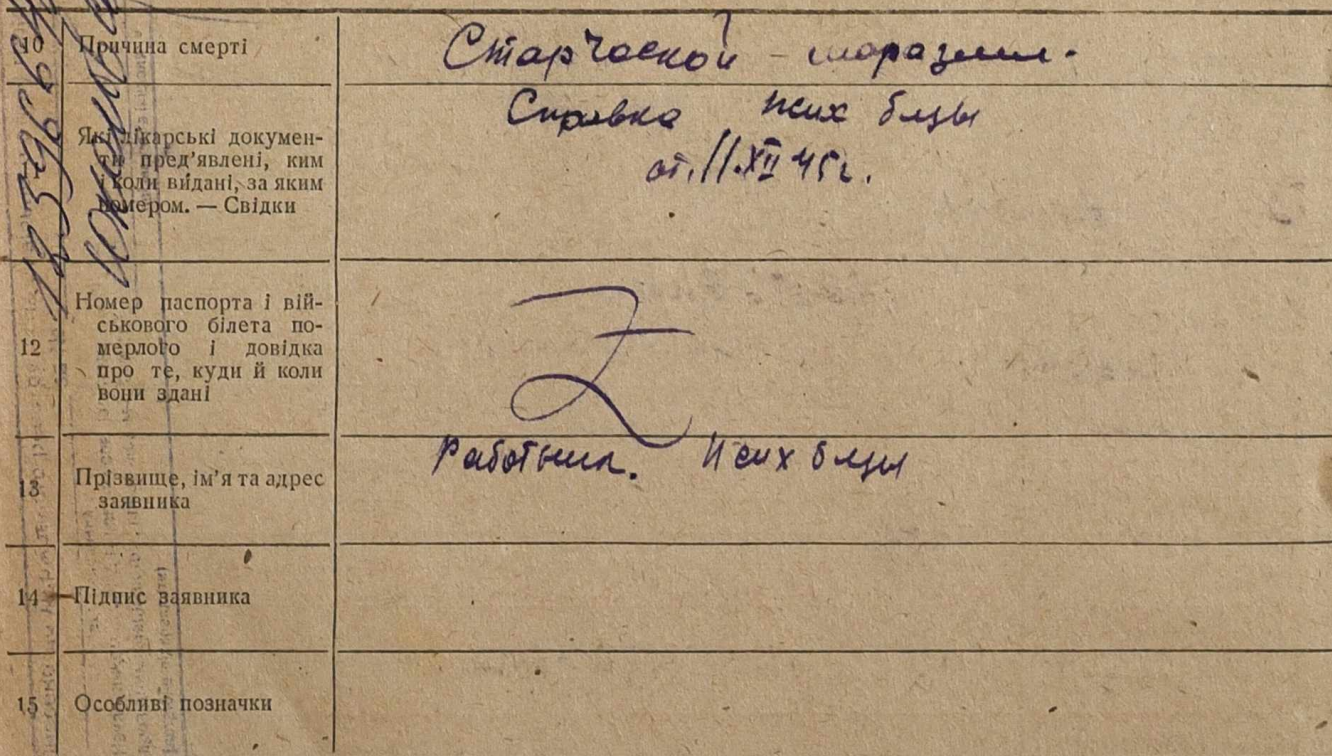 10 Причина смерті
Старческой маразм.
Які лікарські докумен-
ти пред’явлені, ким
і коли видані, за яким
номером. — Свідки
Справка псих б-цы
от 11.XII 45 г.
12
Номер паспорта і вій-
ськового білета по-
мерлого і довідка
про те, куди й коли
вони здані
Z
13
Прізвище, ім’я та адрес
заявника
Работник. Псих б-цы
14 Підпис заявника
15 Особливі позначки